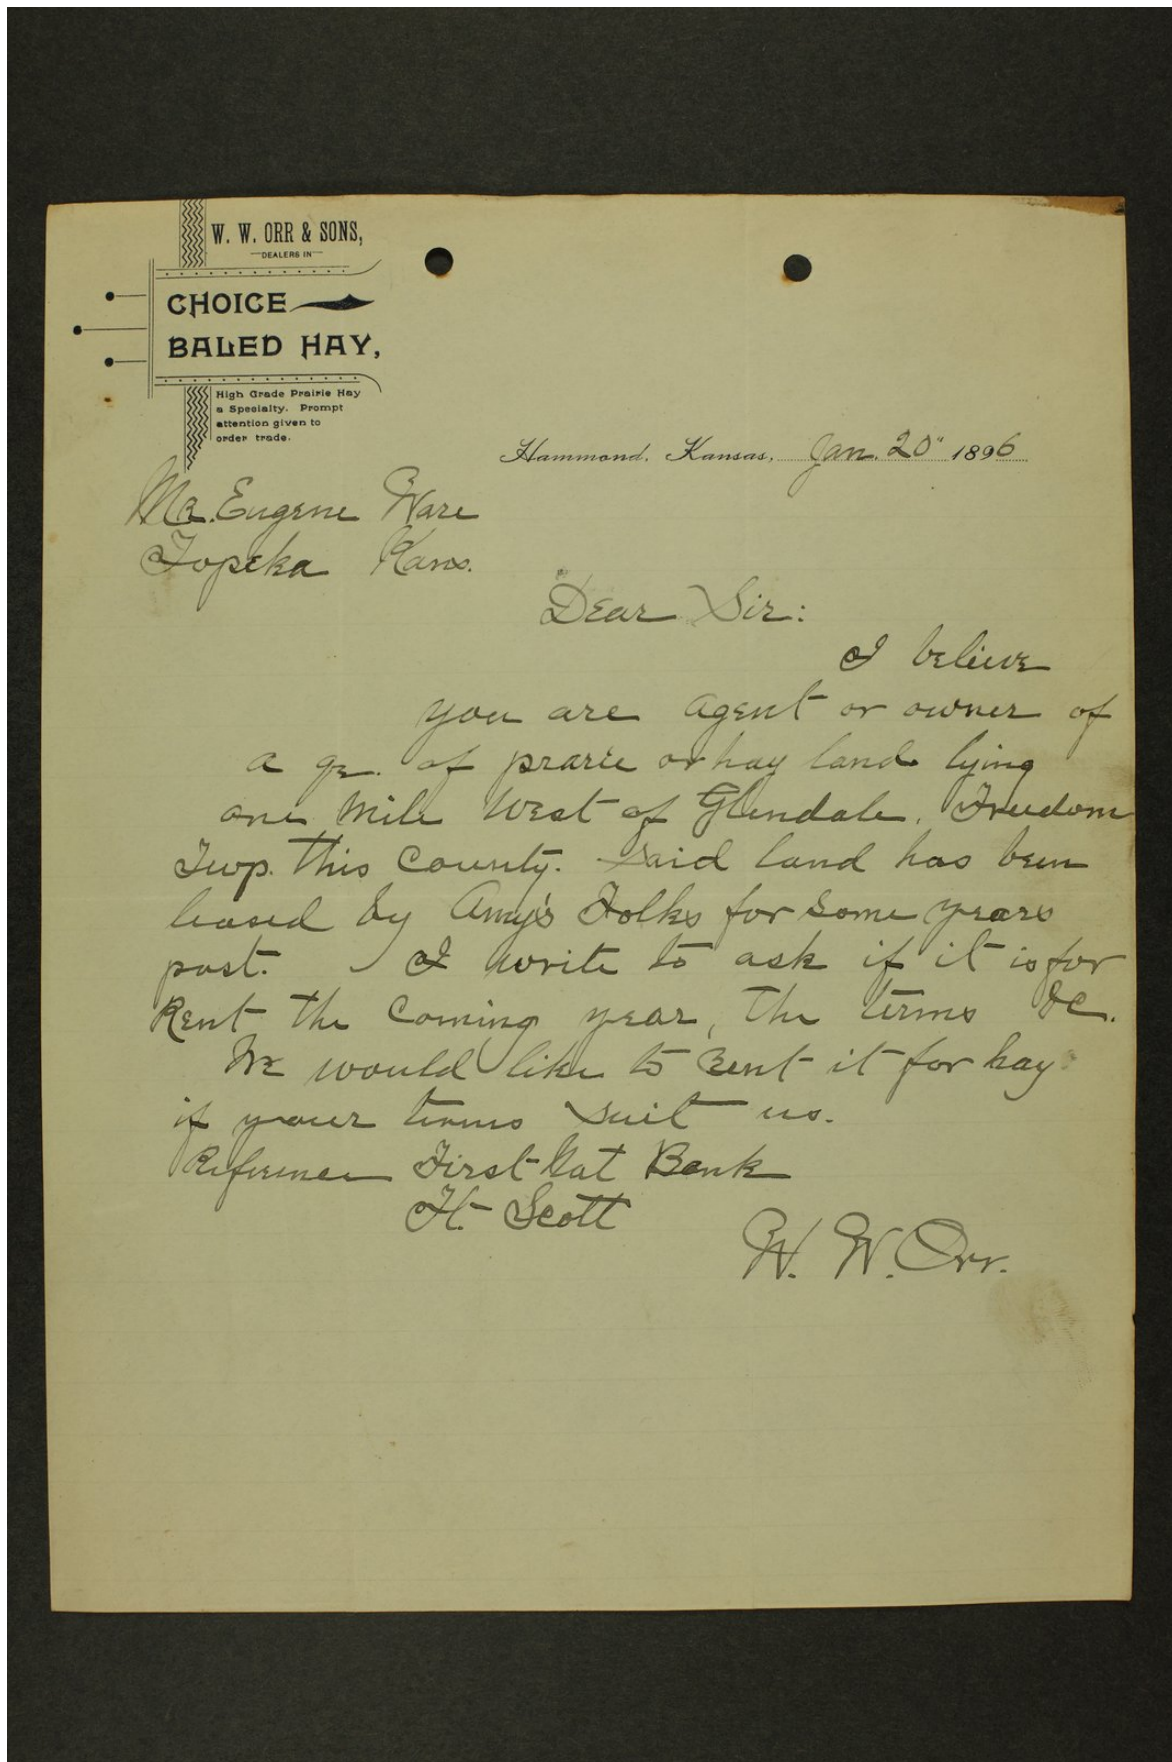 W. W. ORR & SONS,
DEALERS IN
CHOICE
BALED HAY,
High Grade Prairie Hay
a Specialty. Prompt
attention given to
order trade.
Hammond, Kansas, Jan. 20" 1896
Mr. Eugene Ware
Topeka Kans.
Dear Sir:
I believe
you are agent or owner of
a qr. of prarie or hay land lying
one mile West of Glendale, Freedom
Twp. this County. Said land has been
leased by Amy's Folks for some years
past. I write to ask if it is for
Rent the Coming year, the terms &C.
We would like to rent it for hay
if your terms suit us.
Reference First Nat Bank
Ft. Scott
W. W. Orr.